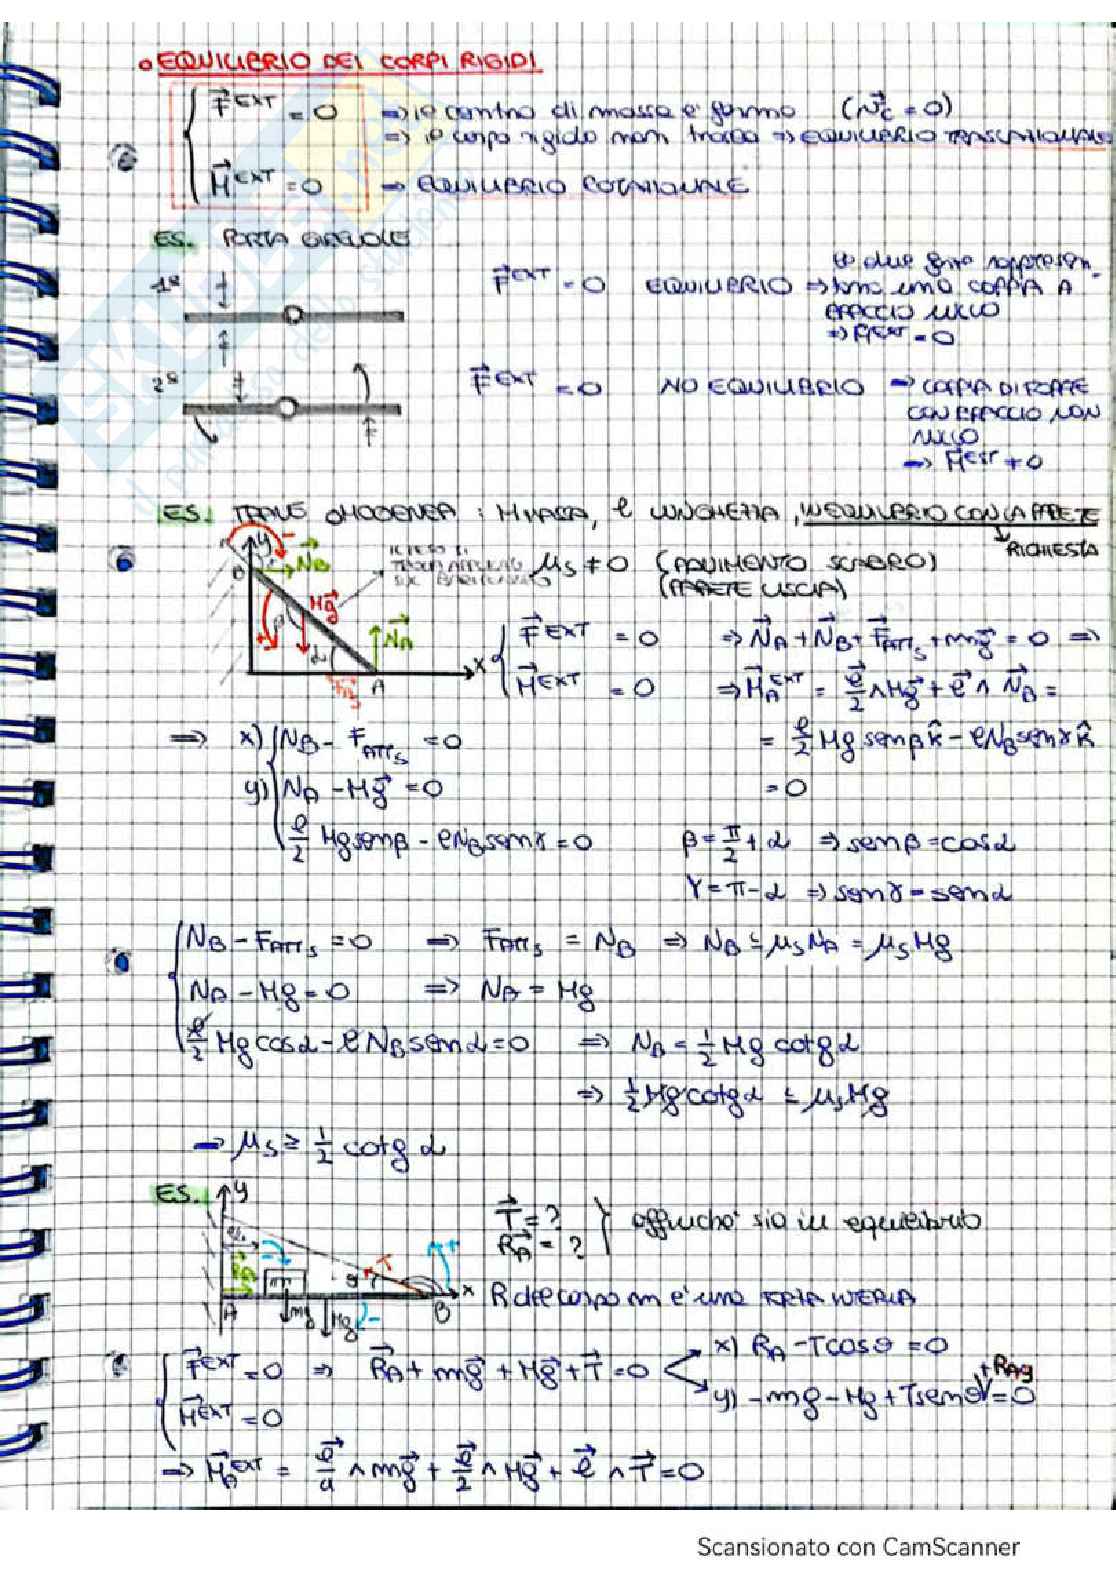 • EQUILIBRIO DEI CORPI RIGIDI
F⃗ᴱˣᵀ = 0 ⇒ il centro di massa è fermo (v⃗c = 0)
⇒ il corpo rigido non trasla ⇒ EQUILIBRIO TRASLAZIONALE
M⃗ᴱˣᵀ = 0 ⇒ EQUILIBRIO ROTAZIONALE
ES. PORTA GIREVOLE
1° F⃗ᴱˣᵀ = 0 EQUILIBRIO ⇒ le due forze rappresen-
tano una COPPIA A
BRACCIO NULLO
⇒ M⃗ᴱˣᵀ = 0
2° F⃗ᴱˣᵀ = 0 NO EQUILIBRIO → COPPIA DI FORZE
CON BRACCIO NON
NULLO
→ M⃗ᴱˣᵀ ≠ 0
ES. TRAVE OMOGENEA: M MASSA, l LUNGHEZZA, IN EQUILIBRIO CON LA PARETE
RICHIESTA
y N⃗B B Mg⃗ β α N⃗A A x
μs ≠ 0 (PAVIMENTO SCABRO)
(PARETE LISCIA)
F⃗ᴱˣᵀ = 0 ⇒ N⃗A + N⃗B + F⃗ATTs + mg⃗ = 0 ⇒
M⃗ᴱˣᵀ = 0 ⇒ M⃗Aᴱˣᵀ = l⃗/2 ∧ Mg⃗ + l⃗ ∧ N⃗B =
⇒ x) NB - FATTs = 0 = l/2 Mg senβ k̂ - l NB senγ k̂
y) NA - Mg⃗ = 0 = 0
l/2 Mg senβ - l NB senγ = 0 β = π/2 + α ⇒ senβ = cosα
γ = π - α ⇒ senγ = senα
NB - FATTs = 0 ⇒ FATTs = NB ⇒ NB ≤ μs NA = μs Mg
NA - Mg = 0 ⇒ NA = Mg
l/2 Mg cosα - l NB senα = 0 ⇒ NB = 1/2 Mg cotg α
⇒ 1/2 Mg cotg α ≤ μs Mg
→ μs ≥ 1/2 cotg α
ES. y T⃗ = ?
R⃗A = ? } affinché sia in equilibrio
R⃗A m T θ A mg⃗ Mg⃗ B x
R del corpo m è una FORZA INTERNA
F⃗ᴱˣᵀ = 0 ⇒ R⃗A + mg⃗ + Mg⃗ + T⃗ = 0 x) RA - T cosθ = 0
M⃗ᴱˣᵀ = 0 y) -mg - Mg + T senθ + RAy = 0
⇒ M⃗Aᴱˣᵀ = l⃗/4 ∧ mg⃗ + l⃗/2 ∧ Mg⃗ + l⃗ ∧ T⃗ = 0
Scansionato con CamScanner